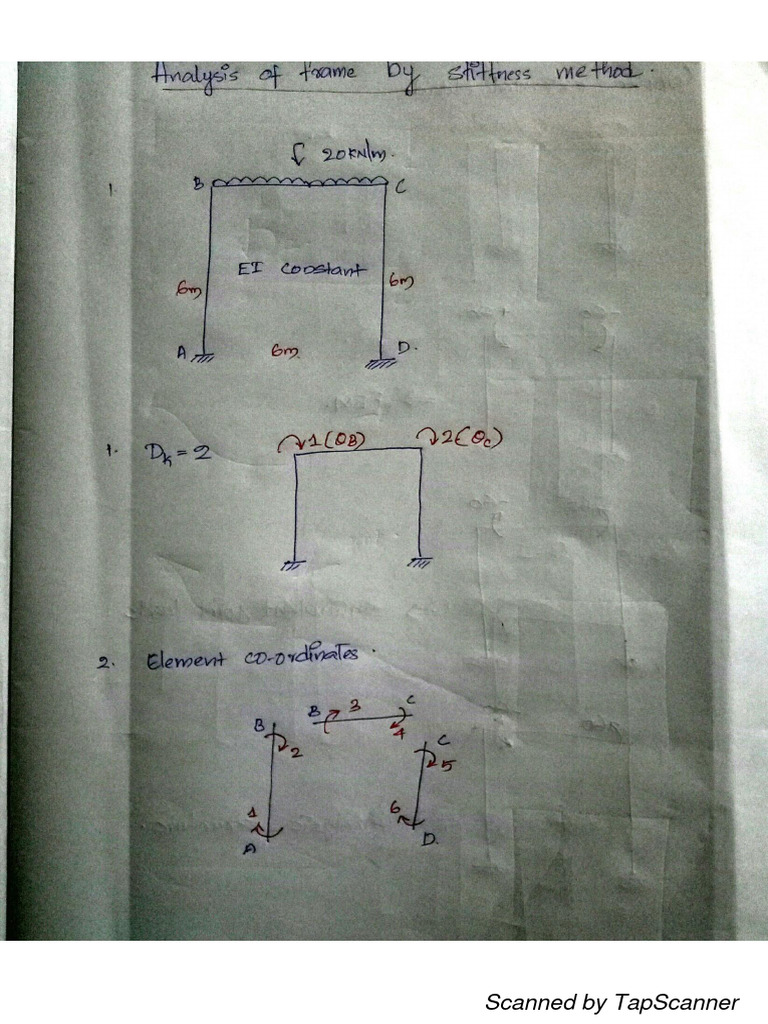 Analysis of frame by stiffness method.
20KN/m.
1.
B
C
EI constant
6m
6m
A
6m
D.
1. Dk = 2
1(θB)
2(θc)
2. Element co-ordinates.
B
2
B
3
C
4
C
5
1
A
6
D.
Scanned by TapScanner